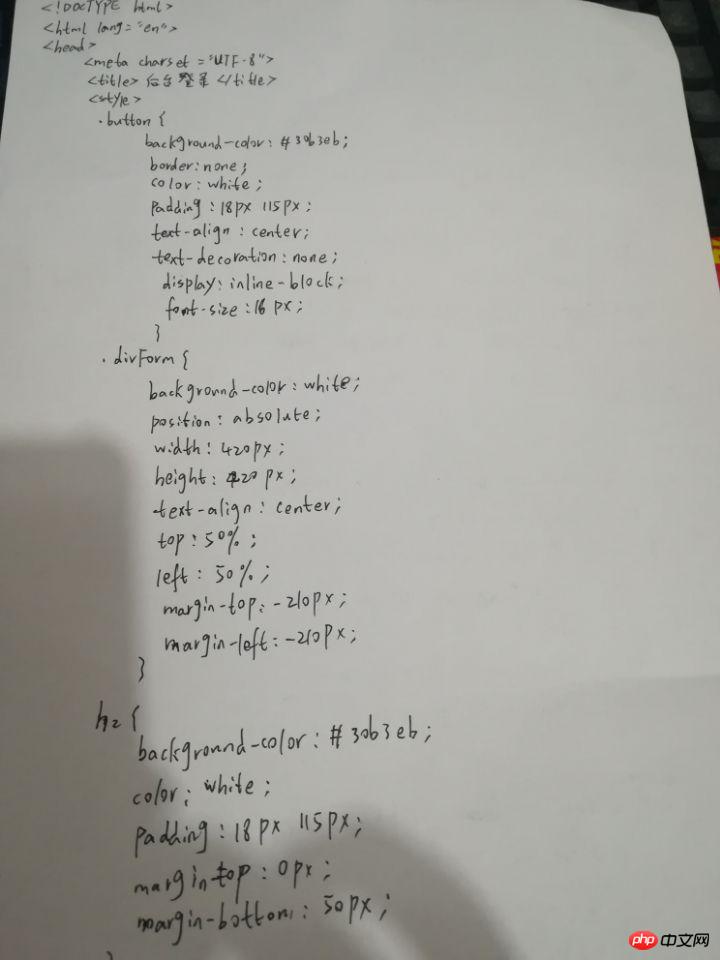 <!DOCTYPE html>
<html lang="en">
<head>
<meta charset="UTF-8">
<title>后台登录</title>
<style>
.button {
background-color: #30b3eb;
border: none;
color: white;
padding: 18px 115px;
text-align: center;
text-decoration: none;
display: inline-block;
font-size: 16px;
}
.divForm {
background-color: white;
position: absolute;
width: 420px;
height: 420px;
text-align: center;
top: 50%;
left: 50%;
margin-top: -210px;
margin-left: -210px;
}
h2 {
background-color: #30b3eb;
color: white;
padding: 18px 115px;
margin-top: 0px;
margin-bottom: 50px;
}
php 中文网